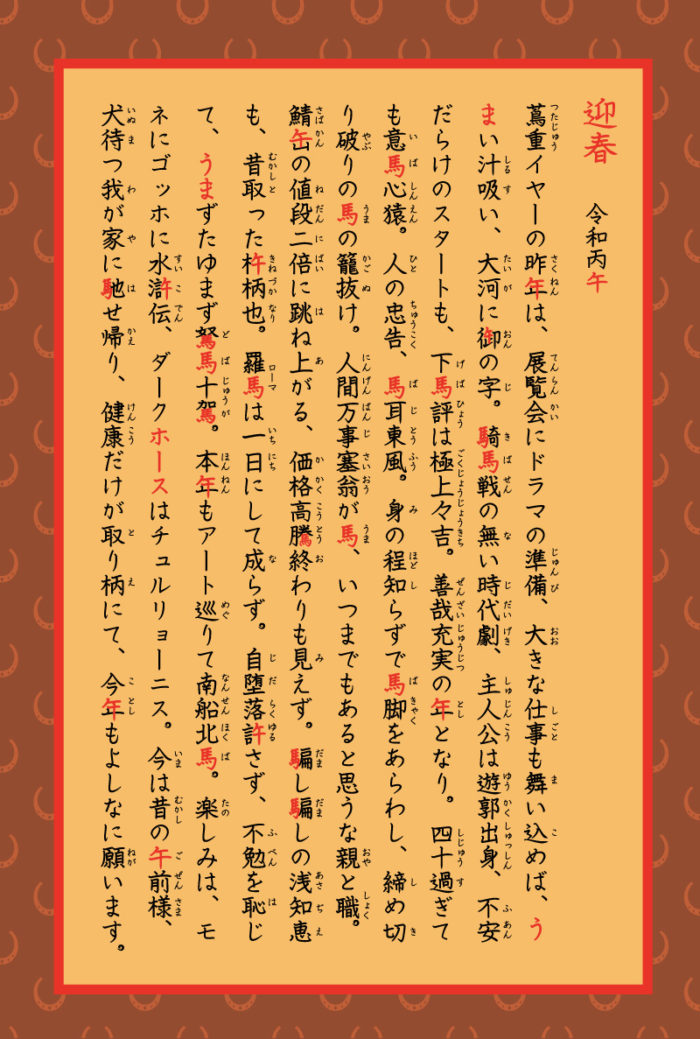 迎春　令和丙午
蔦重イヤーの昨年は、展覧会にドラマの準備、大きな仕事も舞い込めば、う
まい汁吸い、大河に御の字。騎馬戦の無い時代劇、主人公は遊郭出身、不安
だらけのスタートも、下馬評は極上々吉。善哉充実の年となり。四十過ぎて
も意馬心猿。人の忠告、馬耳東風。身の程知らずで馬脚をあらわし、締め切
り破りの馬の籠抜け。人間万事塞翁が馬、いつまでもあると思うな親と職。
鯖缶の値段二倍に跳ね上がる、価格高騰終わりも見えず。騙し騙しの浅知恵
も、昔取った杵柄也。羅馬は一日にして成らず。自堕落許さず、不勉を恥じ
て、うまずたゆまず駑馬十駕。本年もアート巡りて南船北馬。楽しみは、モ
ネにゴッホに水滸伝、ダークホースはチュルリョーニス。今は昔の午前様、
犬待つ我が家に馳せ帰り、健康だけが取り柄にて、今年もよしなに願います。